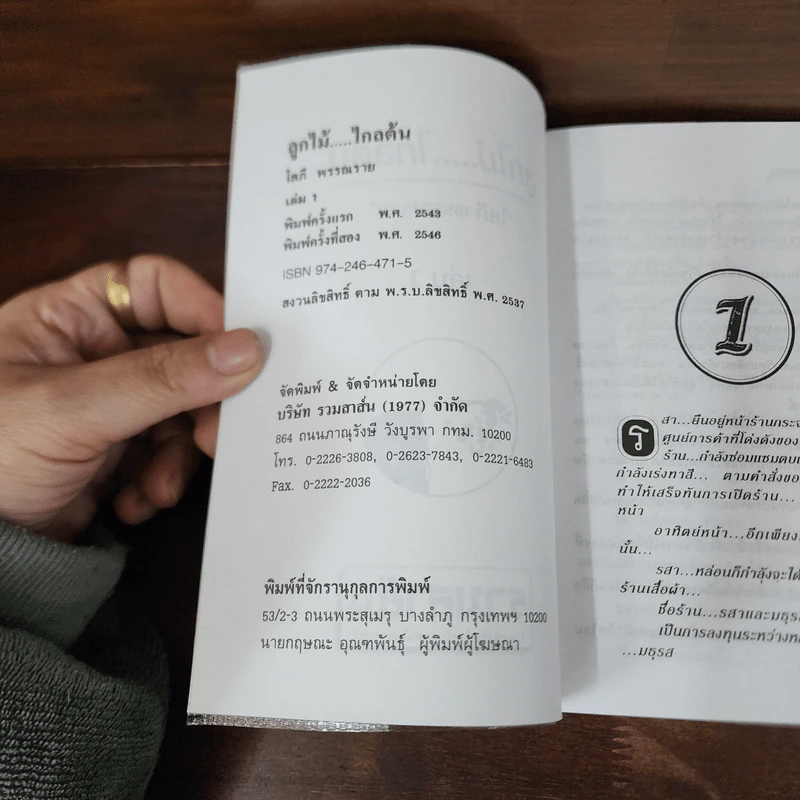 ลูกไม้.....ไกลต้น
โสภี พรรณราย
เล่ม 1
พิมพ์ครั้งแรก พ.ศ. 2543
พิมพ์ครั้งที่สอง พ.ศ. 2546
ISBN 974-246-471-5
สงวนลิขสิทธิ์ ตาม พ.ร.บ.ลิขสิทธิ์ พ.ศ. 2537
จัดพิมพ์ & จัดจำหน่ายโดย
บริษัท รวมสาส์น (1977) จำกัด
864 ถนนภาณุรังษี วังบูรพา กทม. 10200
โทร. 0-2226-3808, 0-2623-7843, 0-2221-6483
Fax. 0-2222-2036
พิมพ์ที่จักรานุกูลการพิมพ์
53/2-3 ถนนพระสุเมรุ บางลำภู กรุงเทพฯ 10200
นายกฤษณะ อุณฑพันธุ์ ผู้พิมพ์ผู้โฆษณา
1
รสา...ยืนอยู่หน้าร้านกระจ
ศูนย์การค้าที่โด่งดังของ
ร้าน...กำลังซ่อมแซมตบแ
กำลังเร่งทาสี... ตามคำสั่งของ
ทำให้เสร็จทันการเปิดร้าน...
หน้า
อาทิตย์หน้า...อีกเพียง
นั้น...
รสา...หล่อนก็กำลังจะได้
ร้านเสื้อผ้า...
ชื่อร้าน...รสาและมธุรส
เป็นการลงทุนระหว่างห
...มธุรส